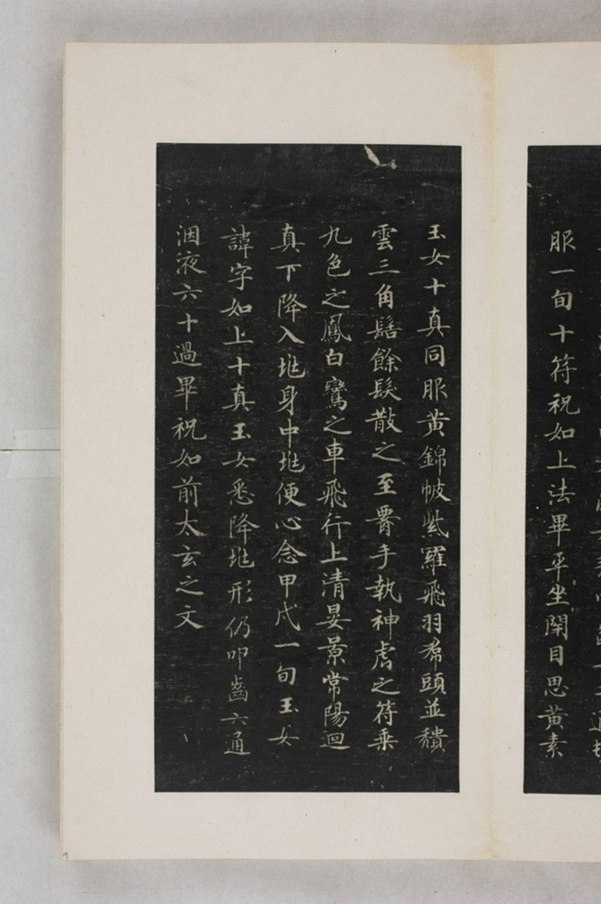 服一旬十符祝如上法畢平坐閉目思黃素
玉女十真同服黃錦帔紫羅飛羽帬頭並穨
雲三角髻餘髮散之至𦝫手執神虎之符乗
九色之鳳白鸞之車飛行上清晏景常陽迴
真下降入𡊁身中𡊁便心念甲戌一旬玉女
諱字如上十真玉女悉降𡊁形仍叩齒六通
咽液六十過畢祝如前太玄之文